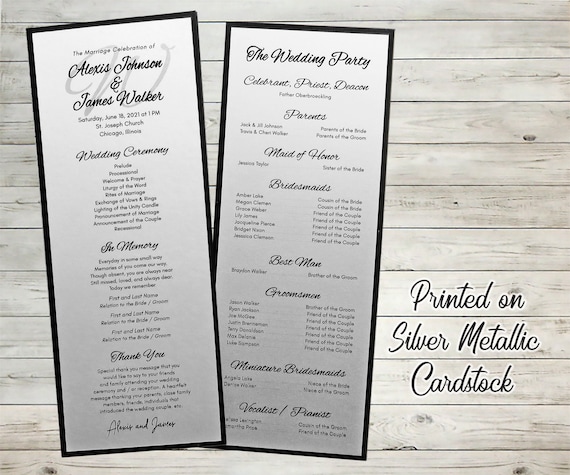 The Marriage Celebration of
W
Alexis Johnson
&
James Walker
Saturday, June 18, 2021 at 1 PM
St. Joseph Church
Chicago, Illinois
Wedding Ceremony
Prelude
Processional
Welcome & Prayer
Liturgy of the Word
Rites of Marriage
Exchange of Vows & Rings
Lighting of the Unity Candle
Pronouncement of Marriage
Announcement of the Couple
Recessional
In Memory
Everyday in some small way
Memories of you come our way
Though absent, you are always near
Still missed, loved, and always dear.
Today we remember
First and Last Name
Relation to the Bride / Groom
First and Last Name
Relation to the Bride / Groom
First and Last Name
Relation to the Bride / Groom
Thank You
Special thank you message that you
would like to say to your friends
and family attending your wedding
ceremony and / or reception. A heartfelt
message thanking your parents, close family
members, friends, individuals that
introduced the wedding couple, etc.
Alexis and James
The Wedding Party
Celebrant, Priest, Deacon
Father Oberbrowckling
Parents
Jack & Jill Johnson Parents of the Bride
Travis & Cheri Walker Parents of the Groom
Maid of Honor
Jessica Taylor Sister of the Bride
Bridesmaids
Amber Lake Cousin of the Bride
Megan Clemen Cousin of the Bride
Grace Weber Cousin of the Groom
Lily James Friend of the Couple
Jacqueline Pierce Friend of the Couple
Bridget Nixon Friend of the Couple
Jessica Clemen Friend of the Couple
Best Man
Brayden Walker Brother of the Groom
Groomsmen
Jason Walker Brother of the Groom
Ryan Jackson Friend of the Couple
Joe McGee Friend of the Couple
Justin Brenneman Friend of the Couple
Terry Donaldson Friend of the Couple
Max Delanie Friend of the Couple
Luke Sampson Friend of the Couple
Miniature Bridesmaids
Angela Lake Niece of the Bride
Denise Walker Niece of the Groom
Vocalist / Pianist
Melissa Lexington Cousin of the Groom
Samantha Price Friend of the Couple
Printed on
Silver Metallic
Cardstock